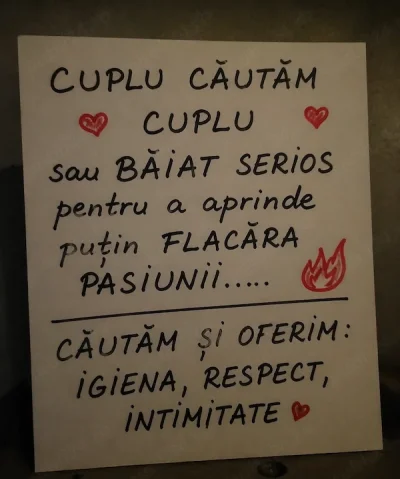 CUPLU CĂUTĂM
CUPLU
sau BĂIAT SERIOS
pentru a aprinde
puțin FLACĂRA
PASIUNII.....
CĂUTĂM ȘI OFERIM:
IGIENA, RESPECT,
INTIMITATE